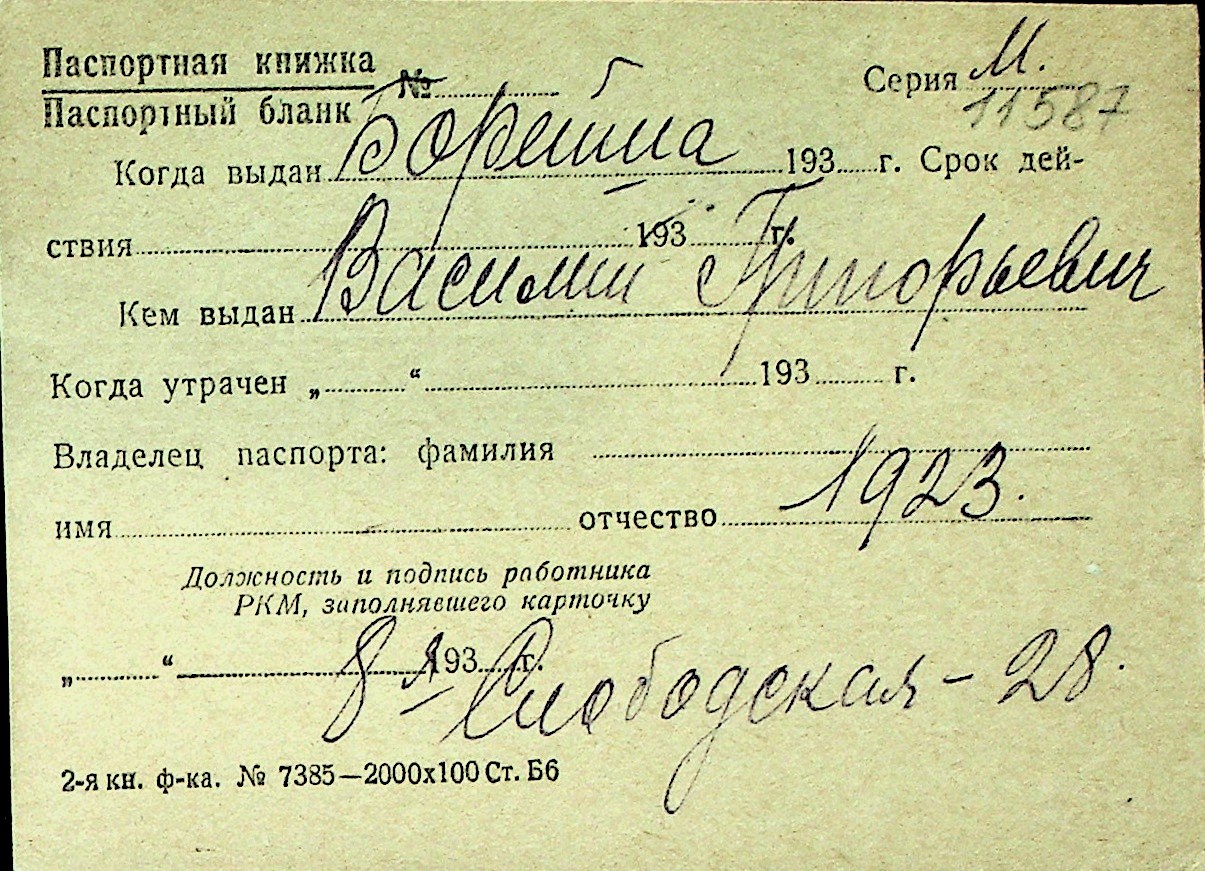 Паспортная книжка № Серия М.
Паспортный бланк 11587
Когда выдан 193 г. Срок дей-
ствия 193 г.
Василий Григорьевич
Кем выдан
Когда утрачен „ “ 193 г.
Владелец паспорта: фамилия
1923.
имя отчество
Должность и подпись работника
РКМ, заполнявшего карточку
„ “ 193 г.
8 я Слободская - 28.
2-я кн. ф-ка. № 7385—2000х100 Ст. Б6